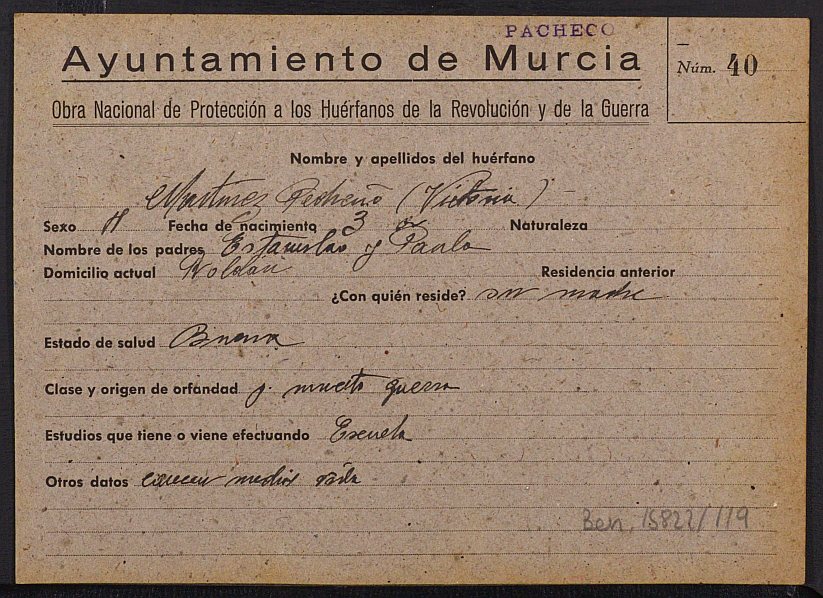 PACHECO
Ayuntamiento de Murcia
Núm. 40
Obra Nacional de Protección a los Huérfanos de la Revolución y de la Guerra
Nombre y apellidos del huérfano
Martinez Pedreño (Victoria)
Sexo H Fecha de nacimiento 3 Naturaleza
Nombre de los padres Estanislao y Paula
Domicilio actual Roldan Residencia anterior
¿Con quién reside? su madre
Estado de salud Buena
Clase y origen de orfandad p. muerto guerra
Estudios que tiene o viene efectuando Escuela
Otros datos carecen medios vida
Ben, 15822/119